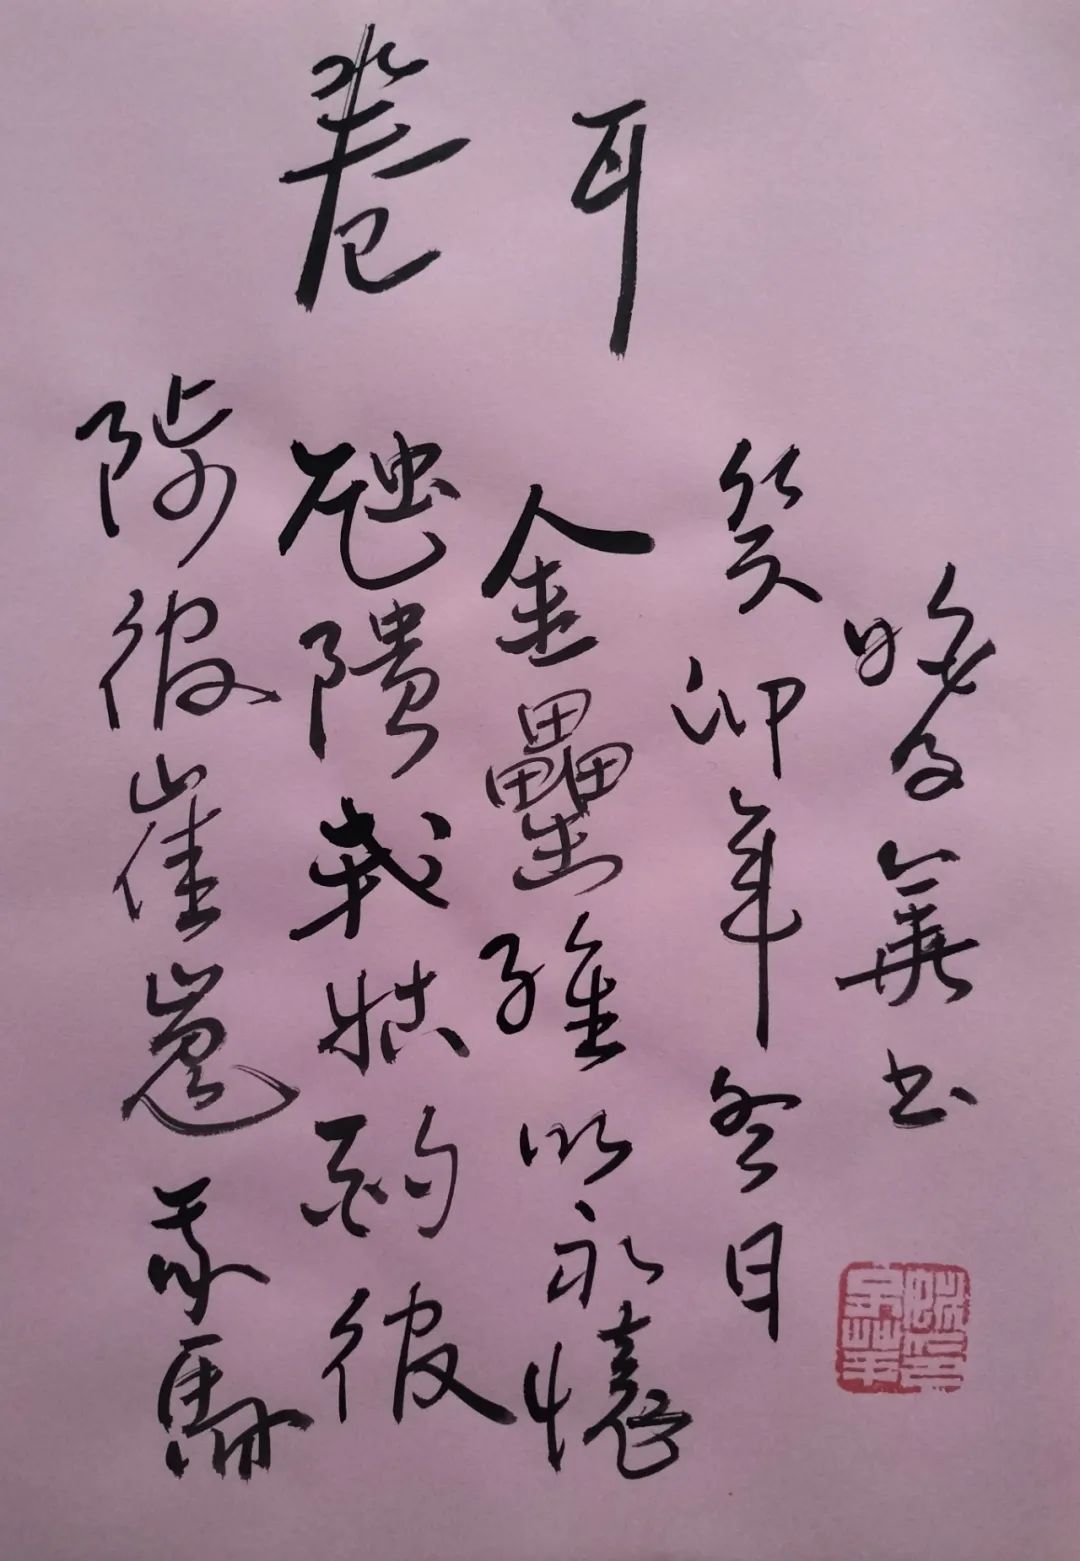 卷耳
陟彼崔嵬我馬
虺隤我姑酌彼
金罍維以永懷
癸卯年冬日
華书